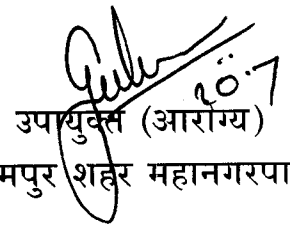 20.7
उपायुक्त (आरोग्य)
मपुर शहर महानगरपा